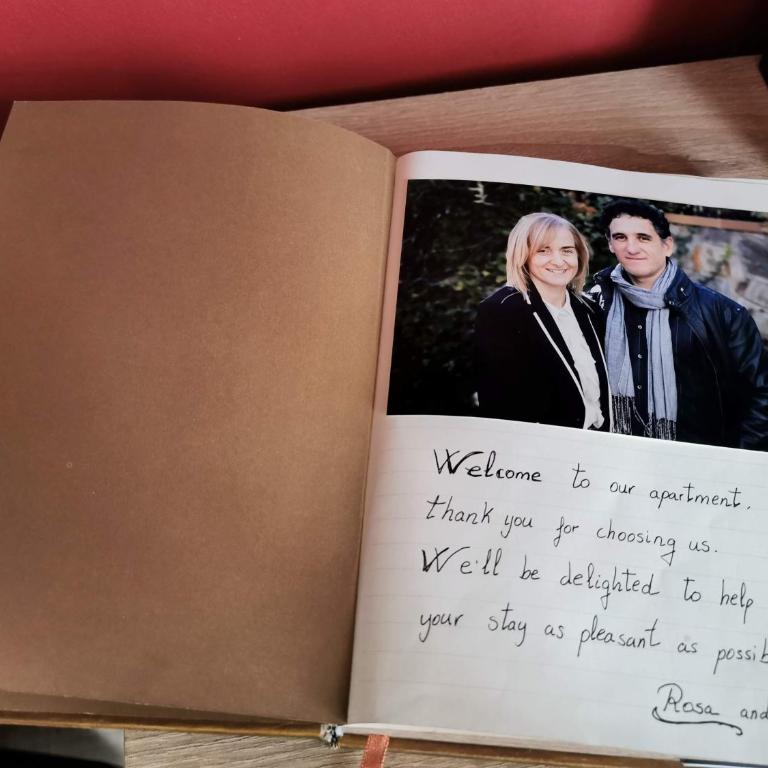 Welcome to our apartment.
thank you for choosing us.
We'll be delighted to help
your stay as pleasant as
Rosa and